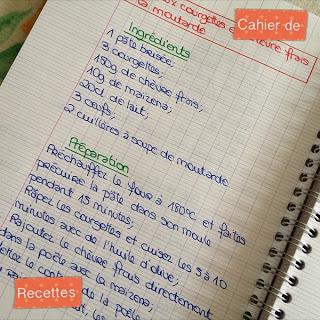 Cahier de
aux courgettes et chèvre frais
à la moutarde
Ingrédients
1 pâte brisée;
3 courgettes;
150g de chèvre frais;
10g de maïzena;
20cl de lait;
3 œufs;
2 cuillères à soupe de moutarde
Préparation
Préchauffez le four à 180°C et faites
précuire la pâte dans son moule
pendant 15 minutes;
Râpez les courgettes et cuisez les 5 à 10
minutes avec de l'huile d'olive;
Rajoutez le chèvre frais directement
dans la poêle avec la maïzena;
de la poêle
les
Recettes